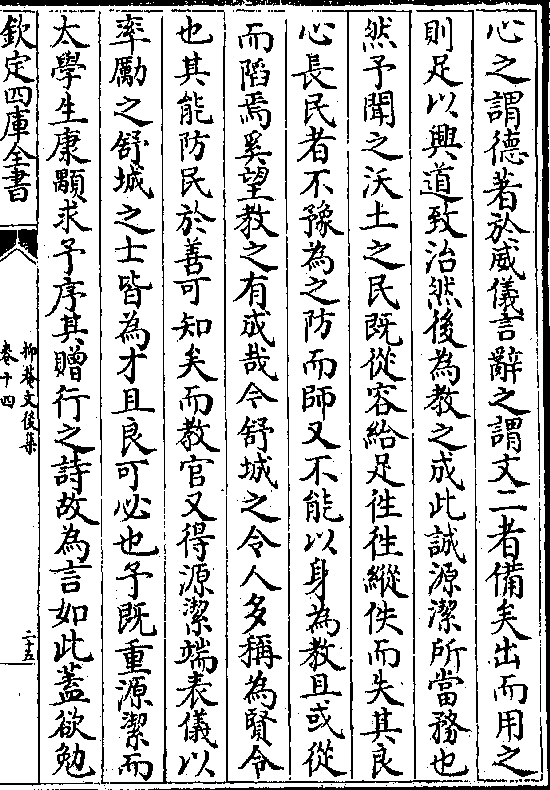 心之謂德著於威儀言辭之謂文二者備矣出而用之
則足以興道致治然後為教之成此誠源潔所當務也
然予聞之沃土之民既從容給足徃徃縱佚而失其良
心長民者不豫為之防而師又不能以身為教且或從
而䧟焉奚望教之有成哉今舒城之令人多稱為賢令
也其能防民於善可知矣而教官又得源潔端表儀以
率厲之舒城之士皆為才且良可必也予既重源潔而
太學生康顒求予序其贈行之詩故為言如此蓋欲勉
欽定四庫全書
抑菴文後集
卷十四
二十五